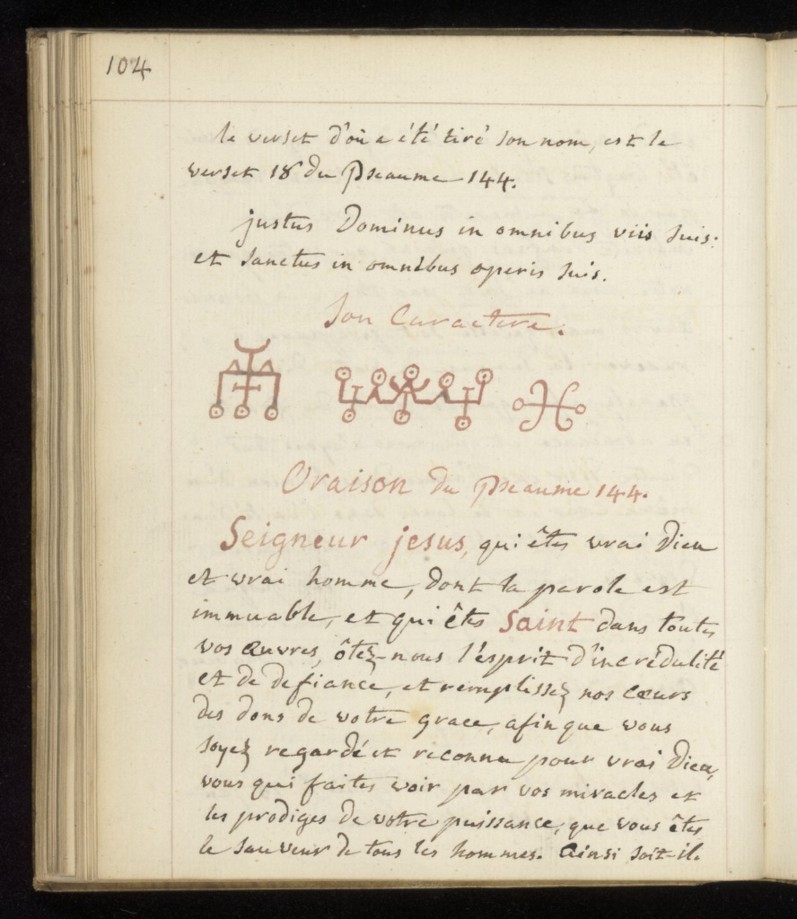 104
le verset d'où a été tiré son nom, est le
verset 18 du Pseaume 144.
justus Dominus in omnibus viis suis:
et sanctus in omnibus operis suis.
Son Caractere.
Oraison du Pseaume 144.
Seigneur jesus, qui êtes vrai Dieu
et vrai homme, dont la parole est
immuable, et qui êtes Saint dans toutes
vos œuvres, ôtez-nous l'ésprit d'incrédulité
et de defiance, et remplissez nos cœurs
des dons de votre grace, afin que vous
soyez regardé et reconnu pour vrai Dieu,
vous qui faites voir par vos miracles et
les prodiges de votre puissance, que vous êtes
le sauveur de tous les hommes. Ainsi soit-il.